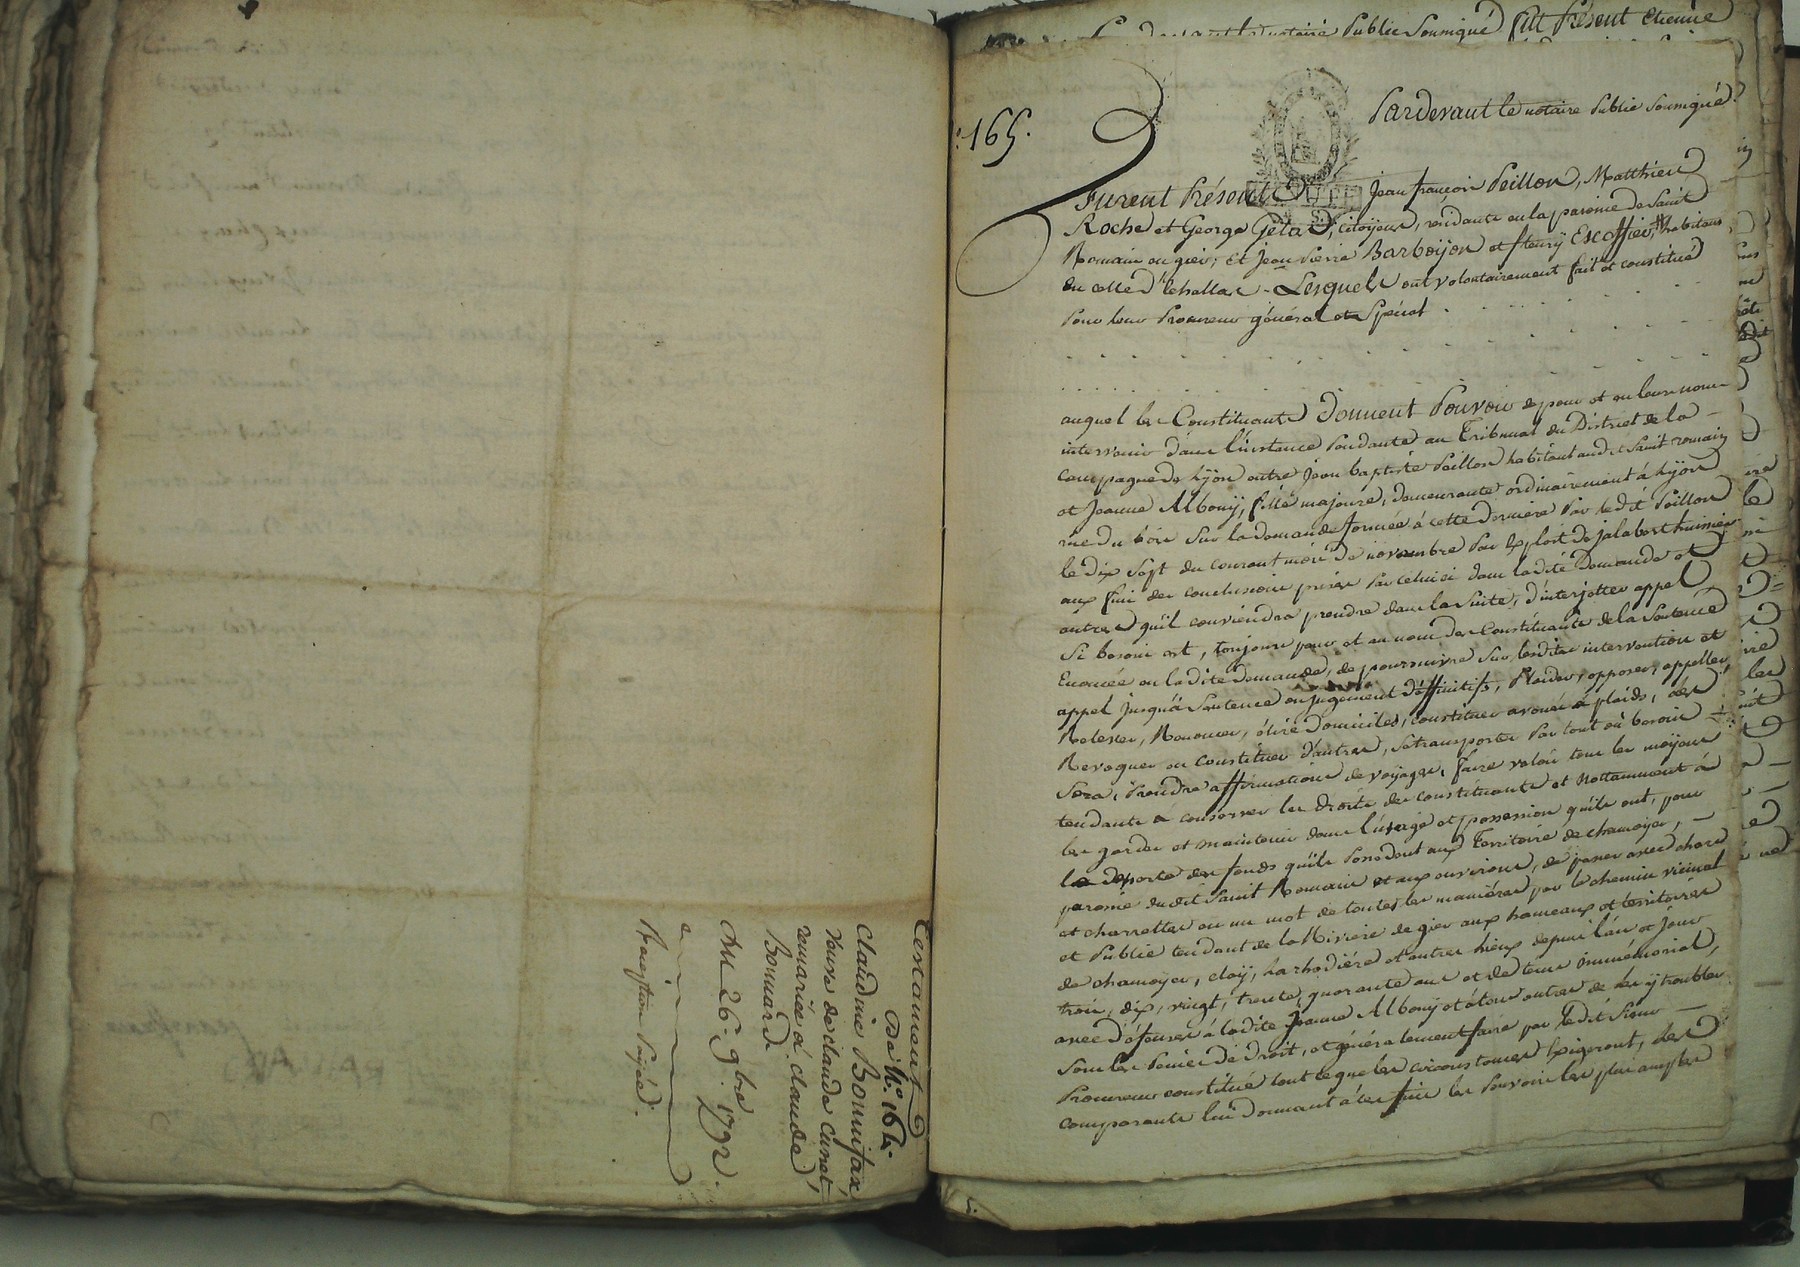 Testament
Cde N.° 164.
Claudine Bonnifax,
Veuve de claude Cunet,
remariée à claude
Bonnard
Du 26. 9.bre 1792.
Par devant le notaire Public Soussigné fut Présent Etienne
165.
Pardevant le notaire Public Soussigné
Furent Présents Jean françois Peillon, Matthieu
Roche et George Gela, citoyens, residants en la paroisse de Saint
Romain en gier, Et Jean Pierre Barboyon et fleury Escoffier, habitans
en celle d'Echallas. Lesquels ont volontairement fait et constitué
Pour leur Procureur général et Spécial
auquel les Constituants Donnent Pouvoir de pour et en leurs noms
intervenir dans l'instance Pendante au Tribunal du District de la
campagne de Lÿon entre Jean baptiste Peillon habitant audit Saint romain
et Jeanne Albouÿ, fille majeure, demeurante ordinairement à Lÿon
rue du bois Sur la demande formée à cette derniere Par ledit Peillon
le dix Sept du courant mois de novembre Par Exploit de jalabert huissier
aux fins des conclusions prises Par celui ci dans ladite Demande et
autres qu'il conviendra prendre dans la Suite, d'interjetter appel
Si besoin est, toujours pour et au nom des Constituants de la Sentence
Enoncée en ladite demande, de poursuivre Sur lesdites intervention et
appel jusqu'à Sentence ou jugement déffinitifs, Plaider, opposer, appeller,
Relever, Renoncer, élire domiciles, constituer avoués à plaids, les
Revoquer en constituer d'autres, Se transporter Par tout où besoin
Sera, Prendre affirmations de voyages, faire valoir tous les moÿens
tendants à conserver les droits des constituants et Nottamment à
les garder et maintenir dans l'usage et possession qu'ils ont, pour
la deporte des fonds qu'ils Possedent aux Territoire de chamoyer,
paroisse dudit Saint Romain et aux environs, de passer avec chars
et charrettes en un mot de toutes les manières par le chemin vicinal
et Public tendant de la Riviere de gier aux hameaux et territoires
de chamoyer, eloÿ, La rhodiére et autres lieux depuis l'an et jour
trois, dix, vingt, trente, quarante ans et de tems immémorial,
avec défenses à ladite Jeanne Albouÿ et à tous autres de les ÿ troubler
Sous les Peines de droit, et généralement faire par ledit Sieur
Procureur constitué tout ce que les circonstances Exigeront, les
comparants lui donnant à ces fins les Pouvoirs les plus amples